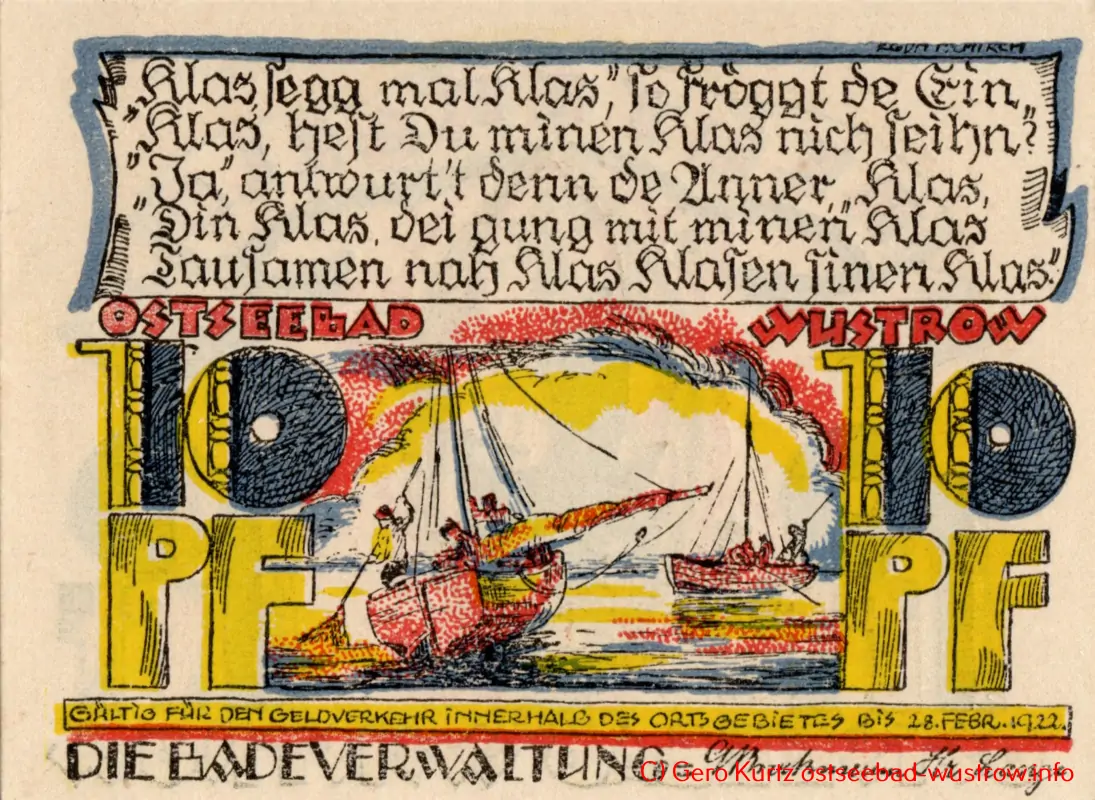 „Klas, segg mal Klas,” so fröggt de Ein,
„Klas, hest Du minen Klas nich seihn?”
„Ja,” antwurt't denn de Anner, „Klas,
„Din Klas, dei gung mit minen Klas
Tausamen nah Klas Klasen sinen Klas.”
OSTSEEBAD WUSTROW
10 10
PF PF
GÜLTIG FÜR DEN GELDVERKEHR INNERHALB DES ORTSGEBIETES BIS 28. FEBR. 1922.
DIE BADEVERWALTUNG:
C) Gero Kurtz ostseebad-wustrow.info